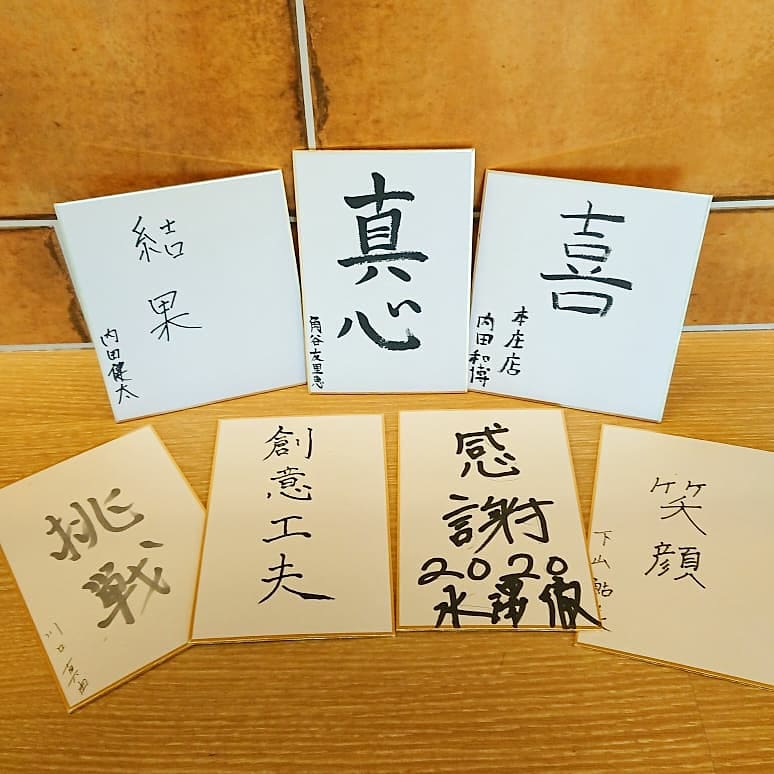 結果
内田健太
真心
角谷友里恵
喜
本庄店
内田和博
挑戦
川口真由
創意工夫
感謝
2020
永澤徹
笑顔
下山